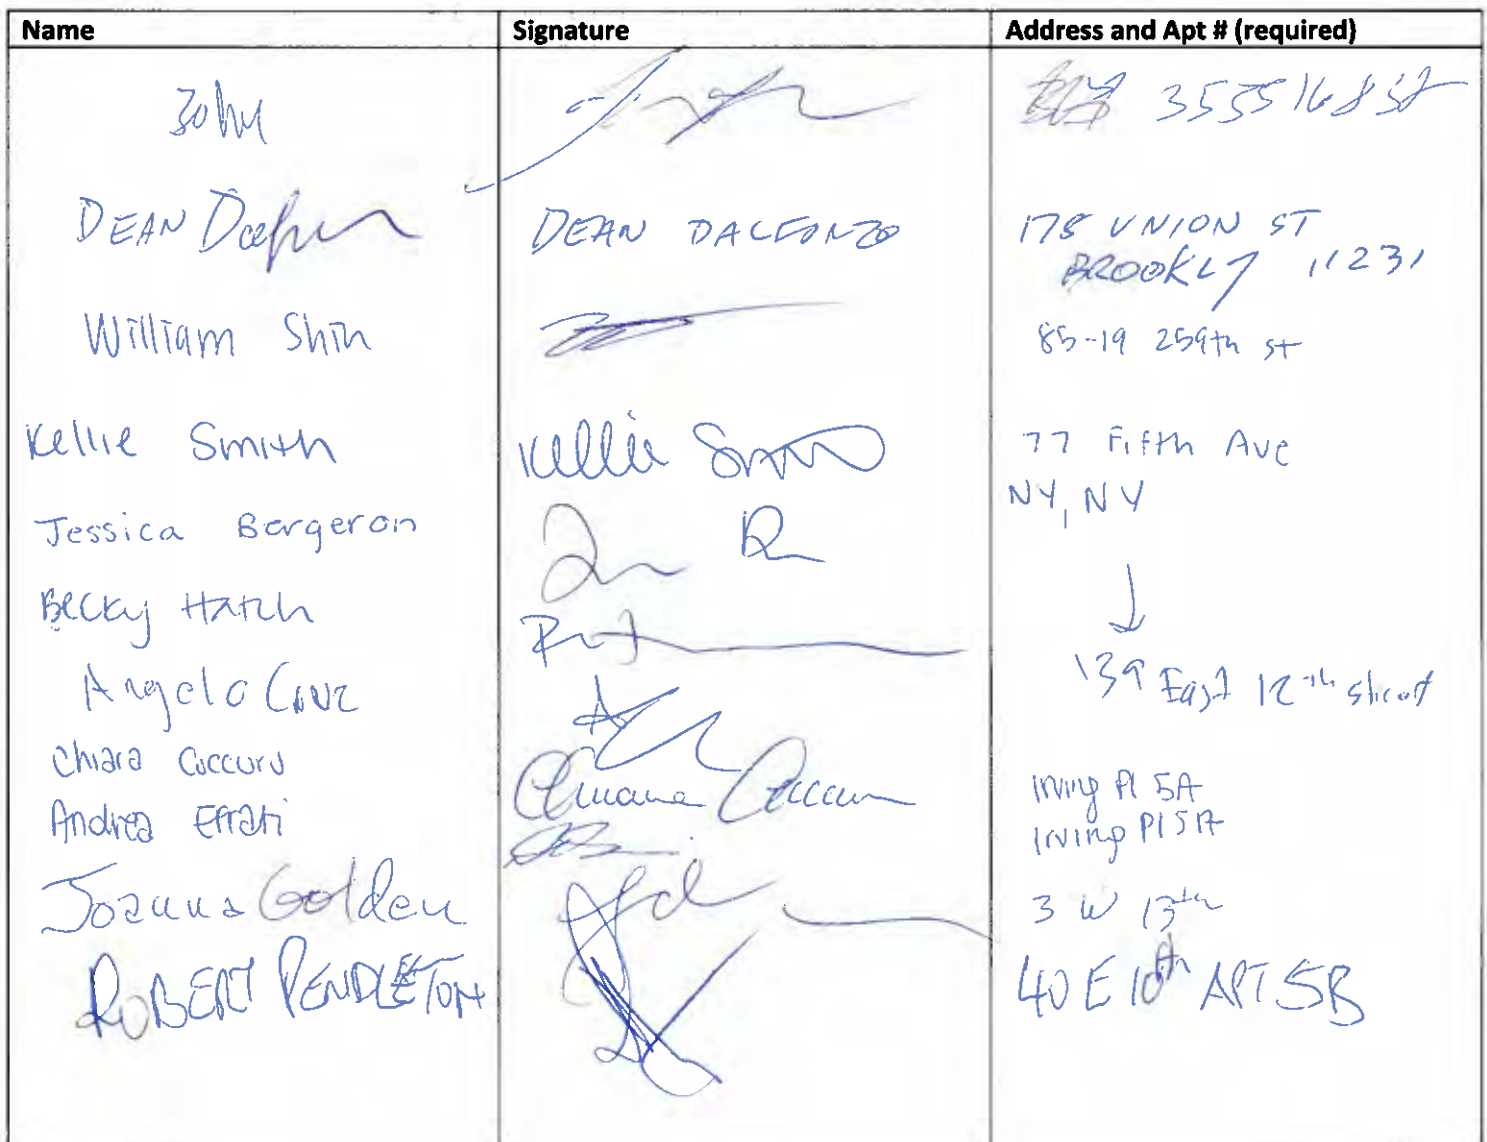 Name Signature Address and Apt # (required)
John 35-35 168 St
DEAN DEAN DALFONZO 178 UNION ST
BROOKLY 11231
William Shin 85-19 259th st
Kellie Smith Kellie Smith 77 Fifth Ave
NY, NY
Jessica Bergeron
Becky Hatch
Angelo Cruz 139 East 12th street
Chiara Coccuro Chiara Irving Pl 5A
Andrea Efrati Irving Pl 5A
Joanna Golden 3 W 13th
ROBERT PENDLETON 40 E 10th APT 5B